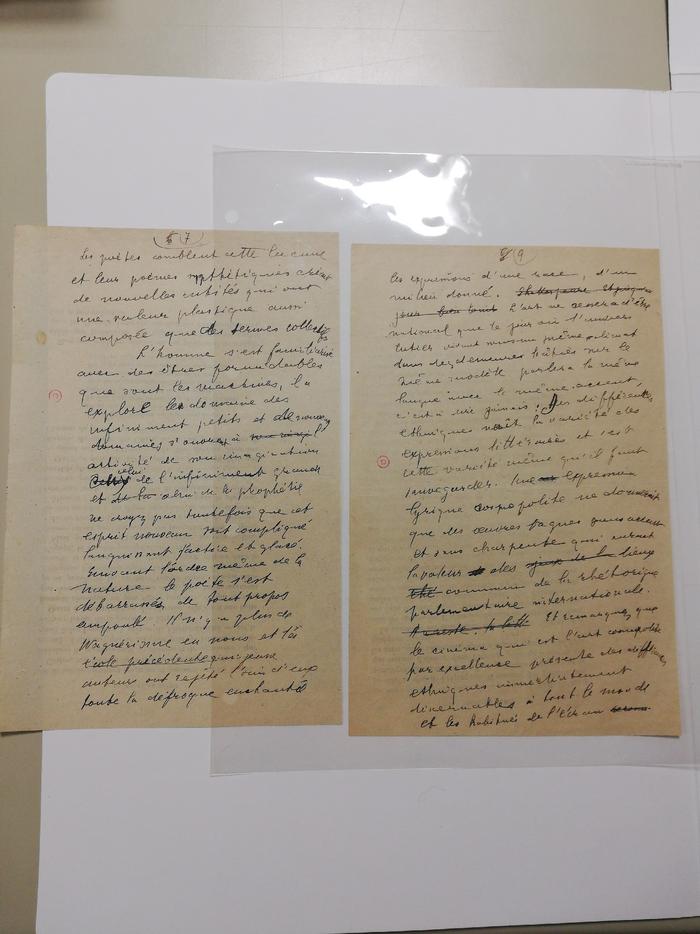 7
les poètes comblent cette lacune
et leurs poèmes synthétiques créent
de nouvelles entités qui ont
une valeur plastique aussi
composée que des termes collectifs
L'homme s'est familiarisé
avec des êtres formidables
que sont les machines, il a
exploré le domaine des
infiniment petits et de nouveaux
domaines s'ouvrent à l'
activité de son imagination
celui de l'infiniment grand
et celui de la prophétie
ne croyez pas toutefois que cet
esprit nouveau soit compliqué
languissant factice et glacé.
Suivant l'ordre même de la
nature le poète s'est
débarrassé de tout propos
ampoulé. Il n'y a plus de
Wagnérisme en nous et la
jeunes
auteurs ont rejeté loin d'eux
toute la défroque enchantée
9
les expressions d'une race, d'un
milieu donné. Shakespeare
L'art ne cessera d'être
national que le jour où l'univers
entier vivant sous un même climat
dans des demeures bâties sur le
même modèle parlera la même
langue avec le même accent
c'est à dire jamais. Des différences
ethniques naît la variété des
expressions littéraires et c'est
cette variété même qu'il faut
sauvegarder. Une expression
lyrique cosmopolite ne donnerait
que des œuvres vagues sans accent
et sans charpente qui auraient
la valeur des lieux
communs de la rhétorique
parlementaire internationale.
Et remarquez que
le cinéma qui est l'art cosmopolite
par excellence présente des différences
ethniques immédiatement
discernables à tout le monde
et les habitués de l'écran